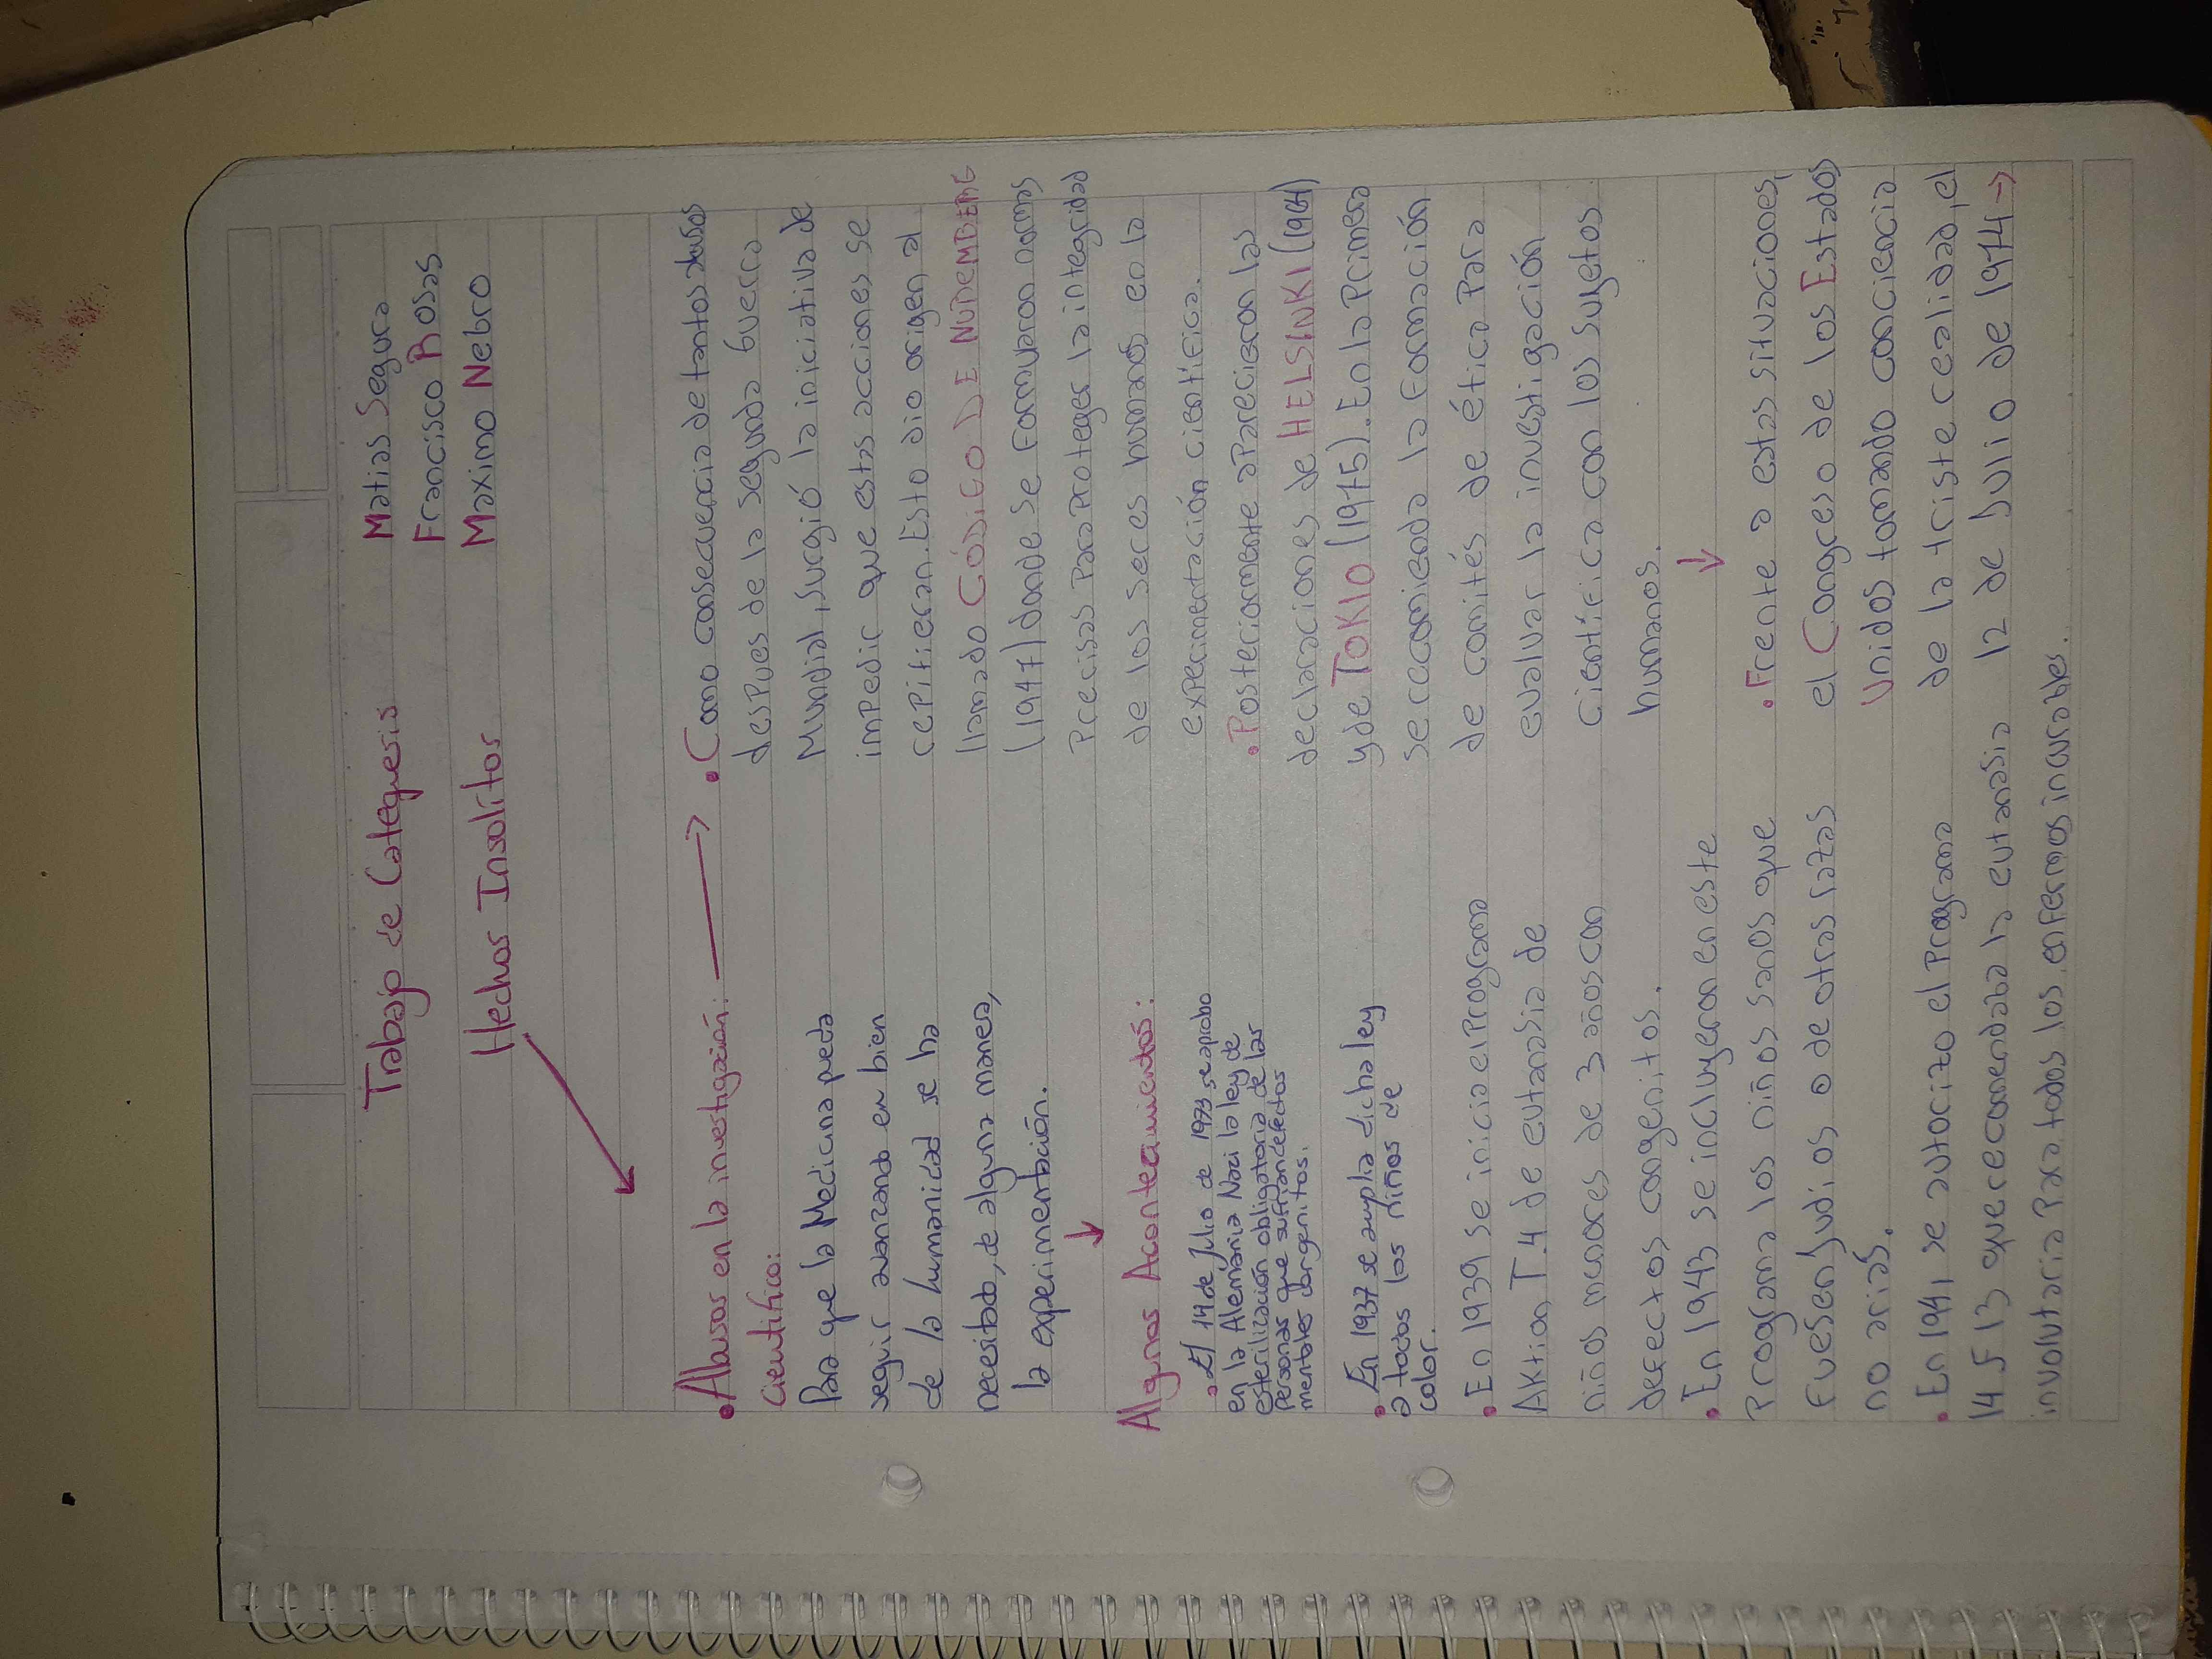 Trabajo de Catequesis
Hechos Insolitos
Matias Segura
Francisco Rosas
Maximo Nebro
•Abusos en la investigación:
Cientifica:
Para que la Medicina pueda
seguir avanzando en bien
de la humanidad se ha
necesitado, de alguna manera,
la experimentación.
Algunos Acontecimientos:
• El 14 de Julio de 1993 se aprobo
en la Alemania Nazi la ley de
esterilización obligatoria de las
personas que sufrian defectos
mentales congenitos.
• En 1937 se amplia dicha ley
a todos los niños de
color.
• En 1939 se inicia el Programa
Aktion T.4 de eutanasia de
niños menores de 3 años con
defectos congenitos.
• En 1943 se incluyeron en este
Programa los niños sanos que
fuesen Judios o de otras razas
no arias.
• En 1941 se autorizo el Programa
14 F 13 que recomendaba la eutanasia
involutaria Para todos los enfermos incurables.
• Como consecuencia de tantos abusos
despues de la segunda Guerra
Mundial, surgió la iniciativa de
impedir que estas acciones se
repitieran. Esto dio origen al
llamado CÓDIGO DE NUREMBERG
(1947) donde se formularon normas
Precisas Para Proteger la integridad
de los seres humanos en la
experimentación cientifica.
• Posteriormente aparecieron las
declaraciones de HELSINKI (1964)
y de TOKIO (1975). En la Primera
se recomienda la formación
de comités de ética Para
evaluar la investigación
científica con los sujetos
humanos.
• Frente a estas situaciones,
el Congreso de los Estados
Unidos tomando conciencia
de la triste realidad, el
12 de Julio de 1974 →